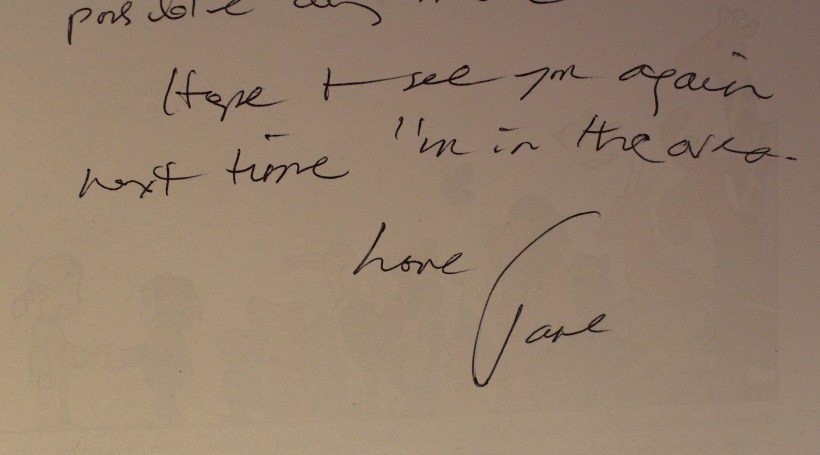 possible
Hope to see you again
next time I'm in the area.
Love
Jane